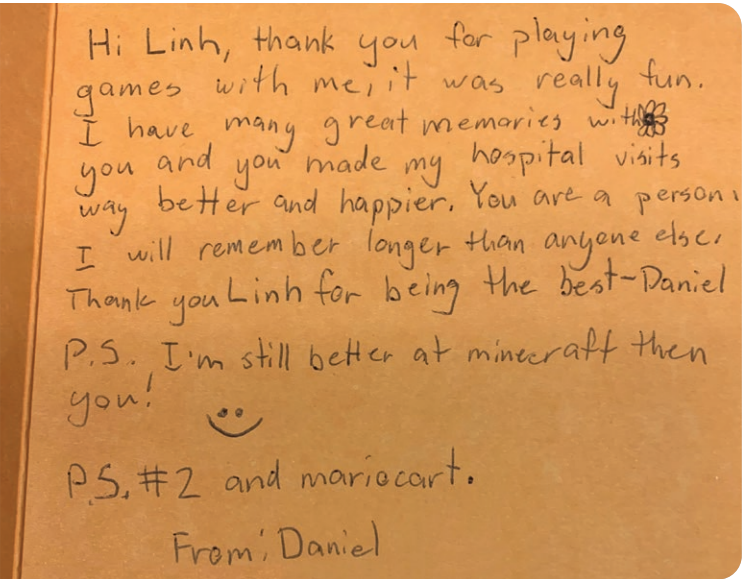 Hi Linh, thank you for playing
games with me, it was really fun.
I have many great memories with
you and you made my hospital visits
way better and happier. You are a person
I will remember longer than anyone else.
Thank you Linh for being the best-Daniel
P.S. I'm still better at minecraft then
you!
P.S. #2 and mariocart.
From: Daniel